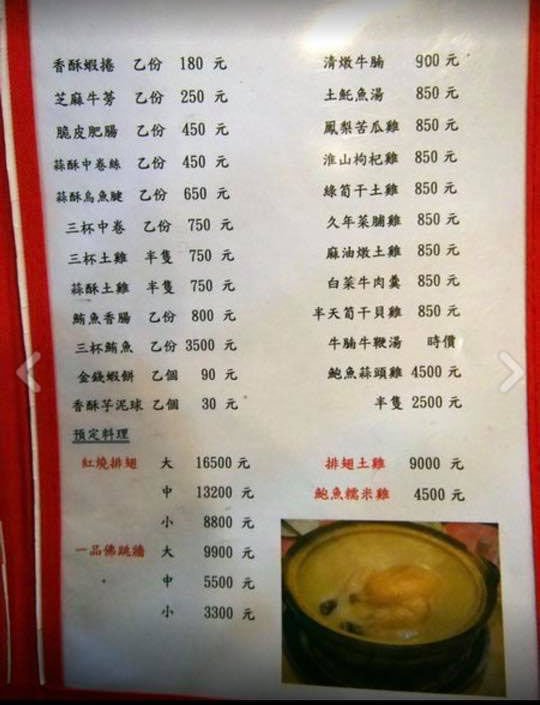 香酥蝦捲 乙份 180 元
芝麻牛蒡 乙份 250 元
脆皮肥腸 乙份 450 元
蒜酥中卷絲 乙份 450 元
蒜酥烏魚腱 乙份 650 元
三杯中卷 乙份 750 元
三杯土雞 半隻 750 元
蒜酥土雞 半隻 750 元
鮪魚香腸 乙份 800 元
三杯鮪魚 乙份 3500 元
金錢蝦餅 乙個 90 元
香酥芋泥球 乙個 30 元
預定料理
紅燒排翅 大 16500 元
中 13200 元
小 8800 元
一品佛跳牆 大 9900 元
中 5500 元
小 3300 元
清燉牛腩 900 元
土魠魚湯 850 元
鳳梨苦瓜雞 850 元
淮山枸杞雞 850 元
綠筍干土雞 850 元
久年菜脯雞 850 元
麻油燉土雞 850 元
白菜牛肉羹 850 元
半天筍干貝雞 850 元
牛腩牛鞭湯 時價
鮑魚蒜頭雞 4500 元
半隻 2500 元
排翅土雞 9000 元
鮑魚糯米雞 4500 元